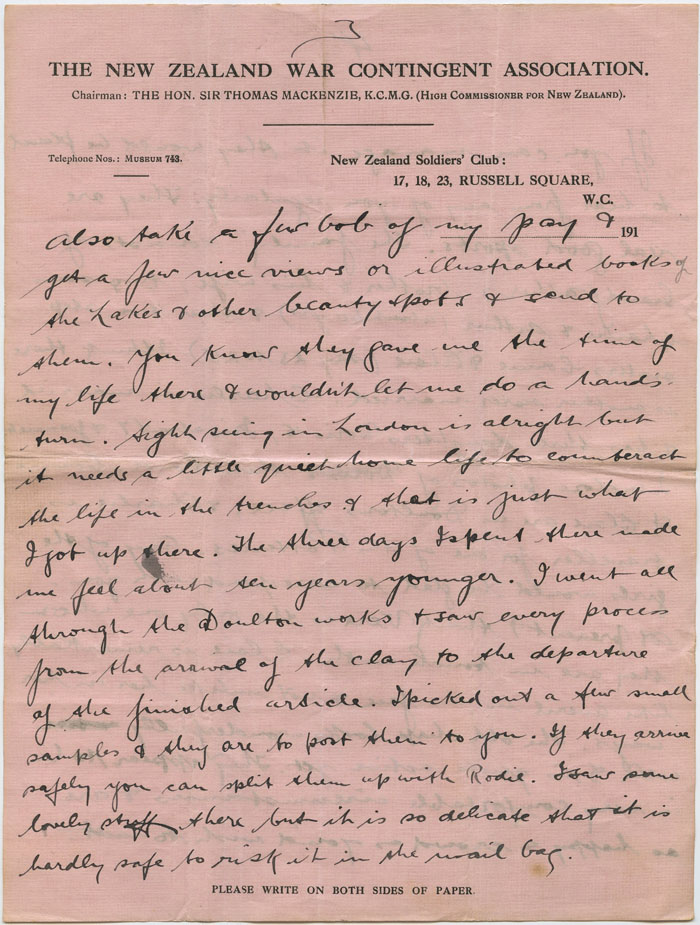 3
THE NEW ZEALAND WAR CONTINGENT ASSOCIATION.
Chairman: THE HON. SIR THOMAS MACKENZIE, K.C.M.G. (HIGH COMMISSIONER FOR NEW ZEALAND).
Telephone Nos.: MUSEUM 743.
New Zealand Soldiers' Club:
17, 18, 23, RUSSELL SQUARE,
W.C.
191
also take a few bob of my pay &
get a few nice views or illustrated books of
the Lakes & other beauty spots & send to
them. You know they gave me the time of
my life there & wouldn't let me do a hand's
turn. Sight seeing in London is alright but
it needs a little quiet home life to counteract
the life in the trenches & that is just what
I got up there. The three days I spent there made
me feel about ten years younger. I went all
through the Doulton works & saw every process
from the arrival of the clay to the departure
of the finished article. I picked out a few small
samples & they are to post them to you. If they arrive
safely you can split them up with Rodie. I saw some
lovely stuff there but it is so delicate that it is
hardly safe to risk it in the mail bag.
PLEASE WRITE ON BOTH SIDES OF PAPER.